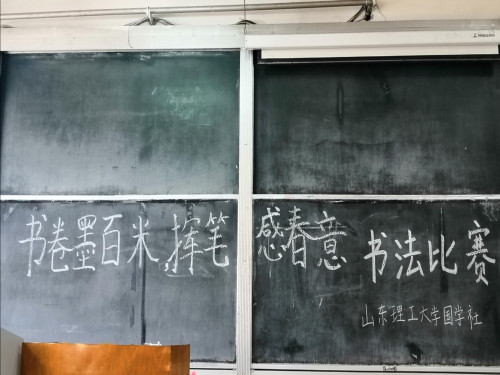 书卷墨百米,挥笔感春意 书法比赛
山东理工大学国学社